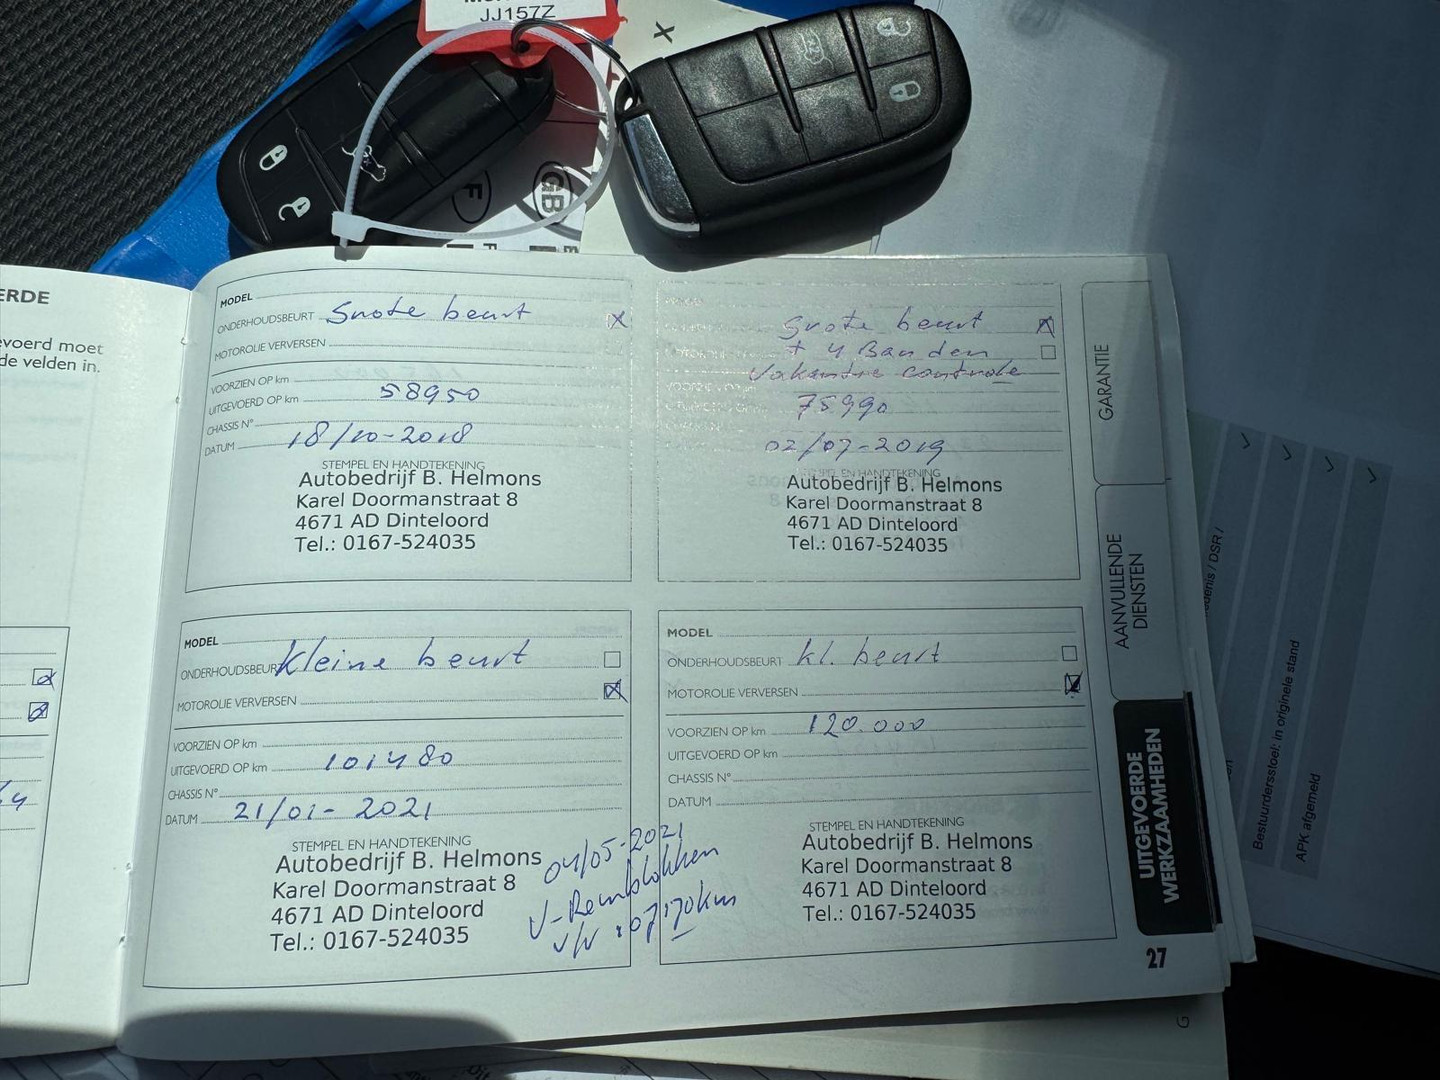 JJ157Z
X
GB
F
ERDE
evoerd moet
de velden in.
MODEL
ONDERHOUDSBEURT Grote beurt X
MOTOROLIE VERVERSEN
VOORZIEN OP km
UITGEVOERD OP km 58950
CHASSIS N°
DATUM 18/10-2018
STEMPEL EN HANDTEKENING
Autobedrijf B. Helmons
Karel Doormanstraat 8
4671 AD Dinteloord
Tel.: 0167-524035
Grote beurt X
+ 4 Banden
Vakantie controle
75990
02/07-2019
STEMPEL EN HANDTEKENING
Autobedrijf B. Helmons
Karel Doormanstraat 8
4671 AD Dinteloord
Tel.: 0167-524035
MODEL
ONDERHOUDSBEURT Kleine beurt
MOTOROLIE VERVERSEN X
VOORZIEN OP km
UITGEVOERD OP km 101480
CHASSIS N°
DATUM 21/01-2021
STEMPEL EN HANDTEKENING
Autobedrijf B. Helmons
Karel Doormanstraat 8
4671 AD Dinteloord
Tel.: 0167-524035
04/05-2021
V-Remblokken
107170km
MODEL
ONDERHOUDSBEURT kl. beurt
MOTOROLIE VERVERSEN
VOORZIEN OP km 120.000
UITGEVOERD OP km
CHASSIS N°
DATUM
STEMPEL EN HANDTEKENING
Autobedrijf B. Helmons
Karel Doormanstraat 8
4671 AD Dinteloord
Tel.: 0167-524035
GARANTIE
AANVULLENDE
DIENSTEN
UITGEVOERDE
WERKZAAMHEDEN
27
denis / DSR /
Bestuurdersstoel: in originele stand
APK afgemeld
G